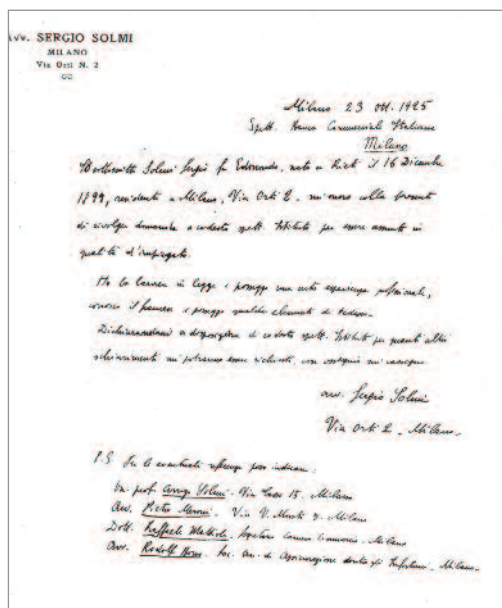 Avv. SERGIO SOLMI
MILANO
Via Orti N. 2
Milano 23 ott. 1925
Spett. Banca Commerciale Italiana
Milano
Il sottoscritto Solmi Sergio fu Edmondo, nato a Rieti il 16 Dicembre
1899, residente a Milano, Via Orti 2, mi onoro colla presente
di rivolger domanda a codesto spett. Istituto per essere assunto in
qualità d'impiegato.
Ho la laurea in legge e posseggo una certa esperienza professionale,
conosco il francese e posseggo qualche elemento di tedesco.
Dichiarandomi a disposizione di codesto spett. Istituto per quanti altri
schiarimenti mi potranno essere richiesti, con ossequio mi
avv. Sergio Solmi
Via Orti 2 - Milano -
P.S. Per le eventuali referenze posso indicare:
prof. Arrigo Solmi - Via 15 - Milano
Avv. Pietro - Via V. Monti - Milano
Dott. Raffaele Mattioli - Milano
Avv. Soc. an. di Assicurazione contro gli Infortuni - Milano -